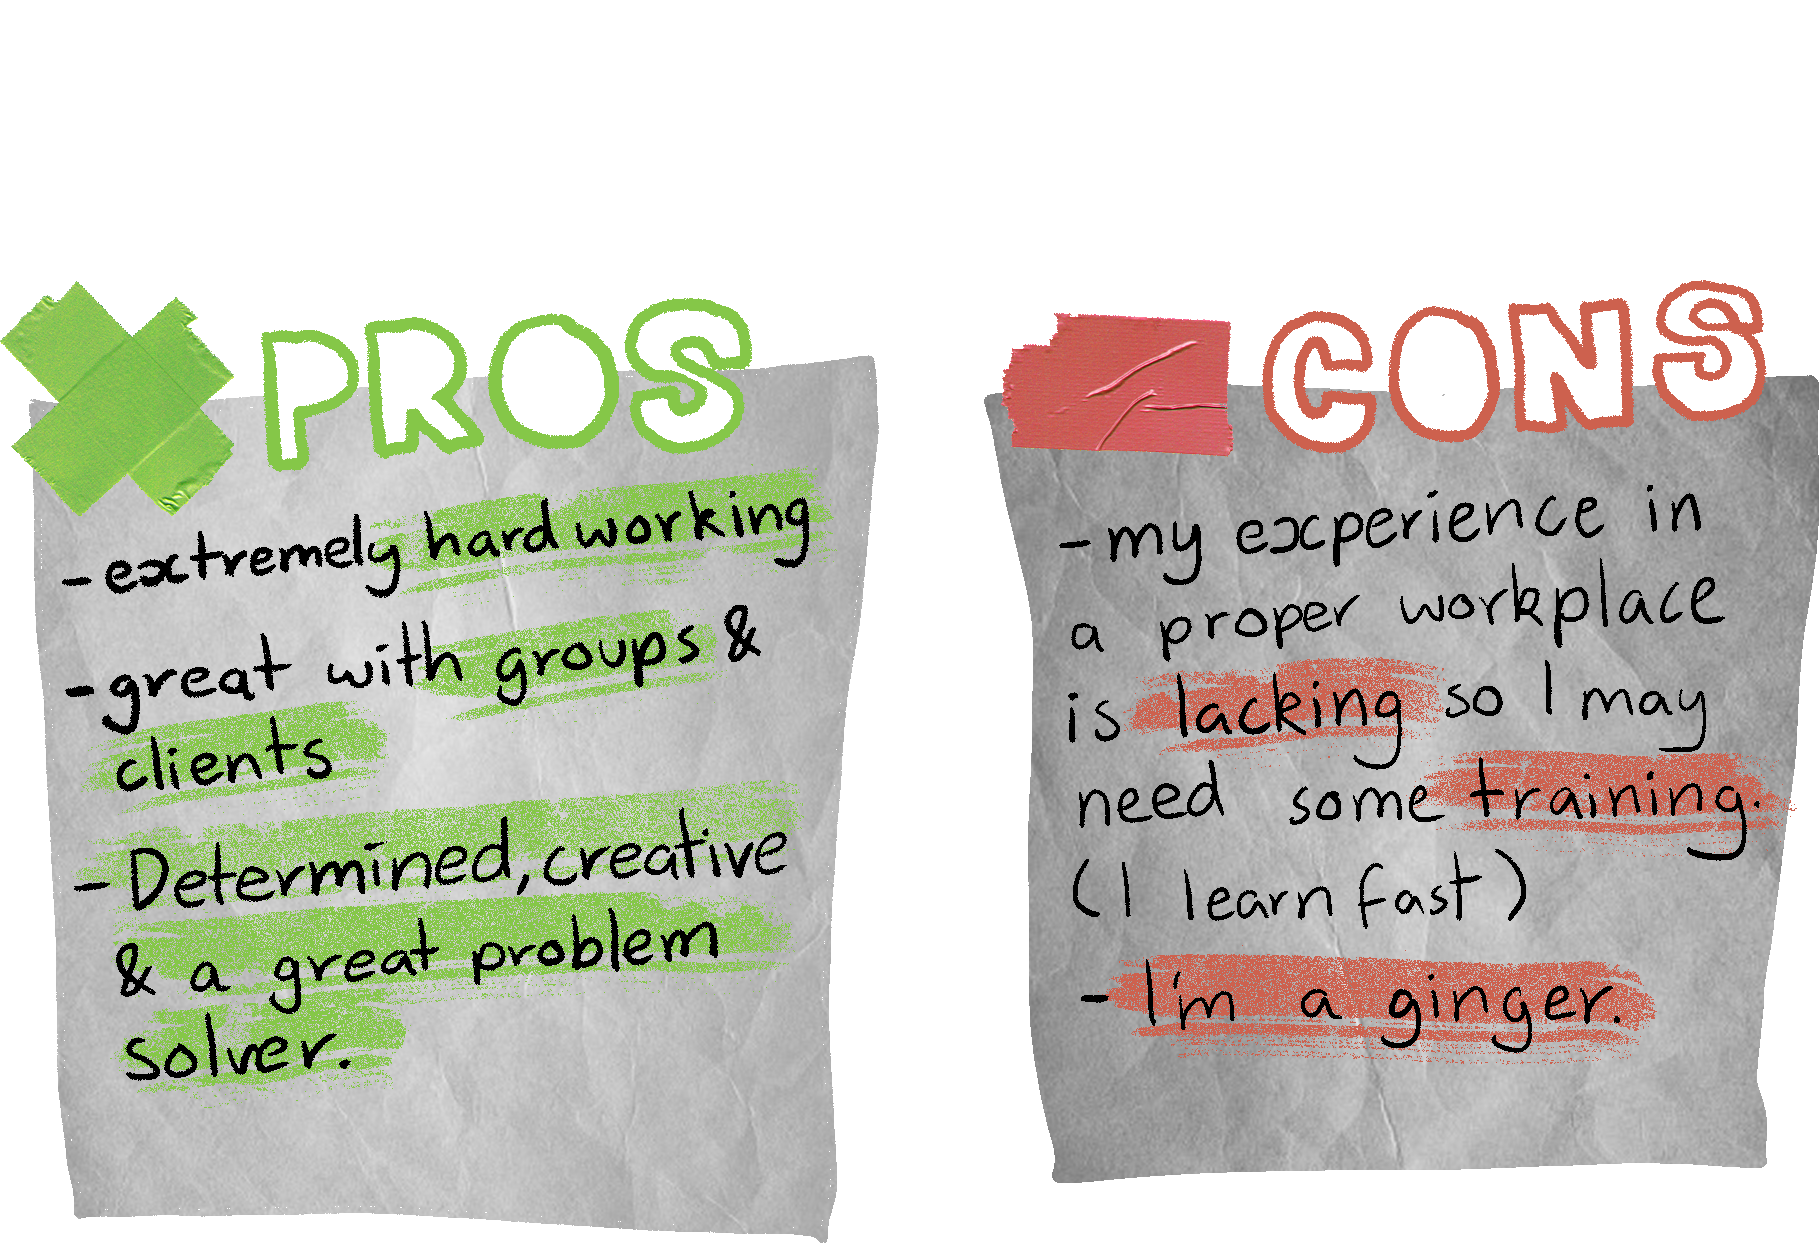 PROS
-extremely hard working
-great with groups &
clients
-Determined, creative
& a great problem
solver.
CONS
-my experience in
a proper workplace
is lacking so I may
need some training.
(I learn fast)
- I'm a ginger.